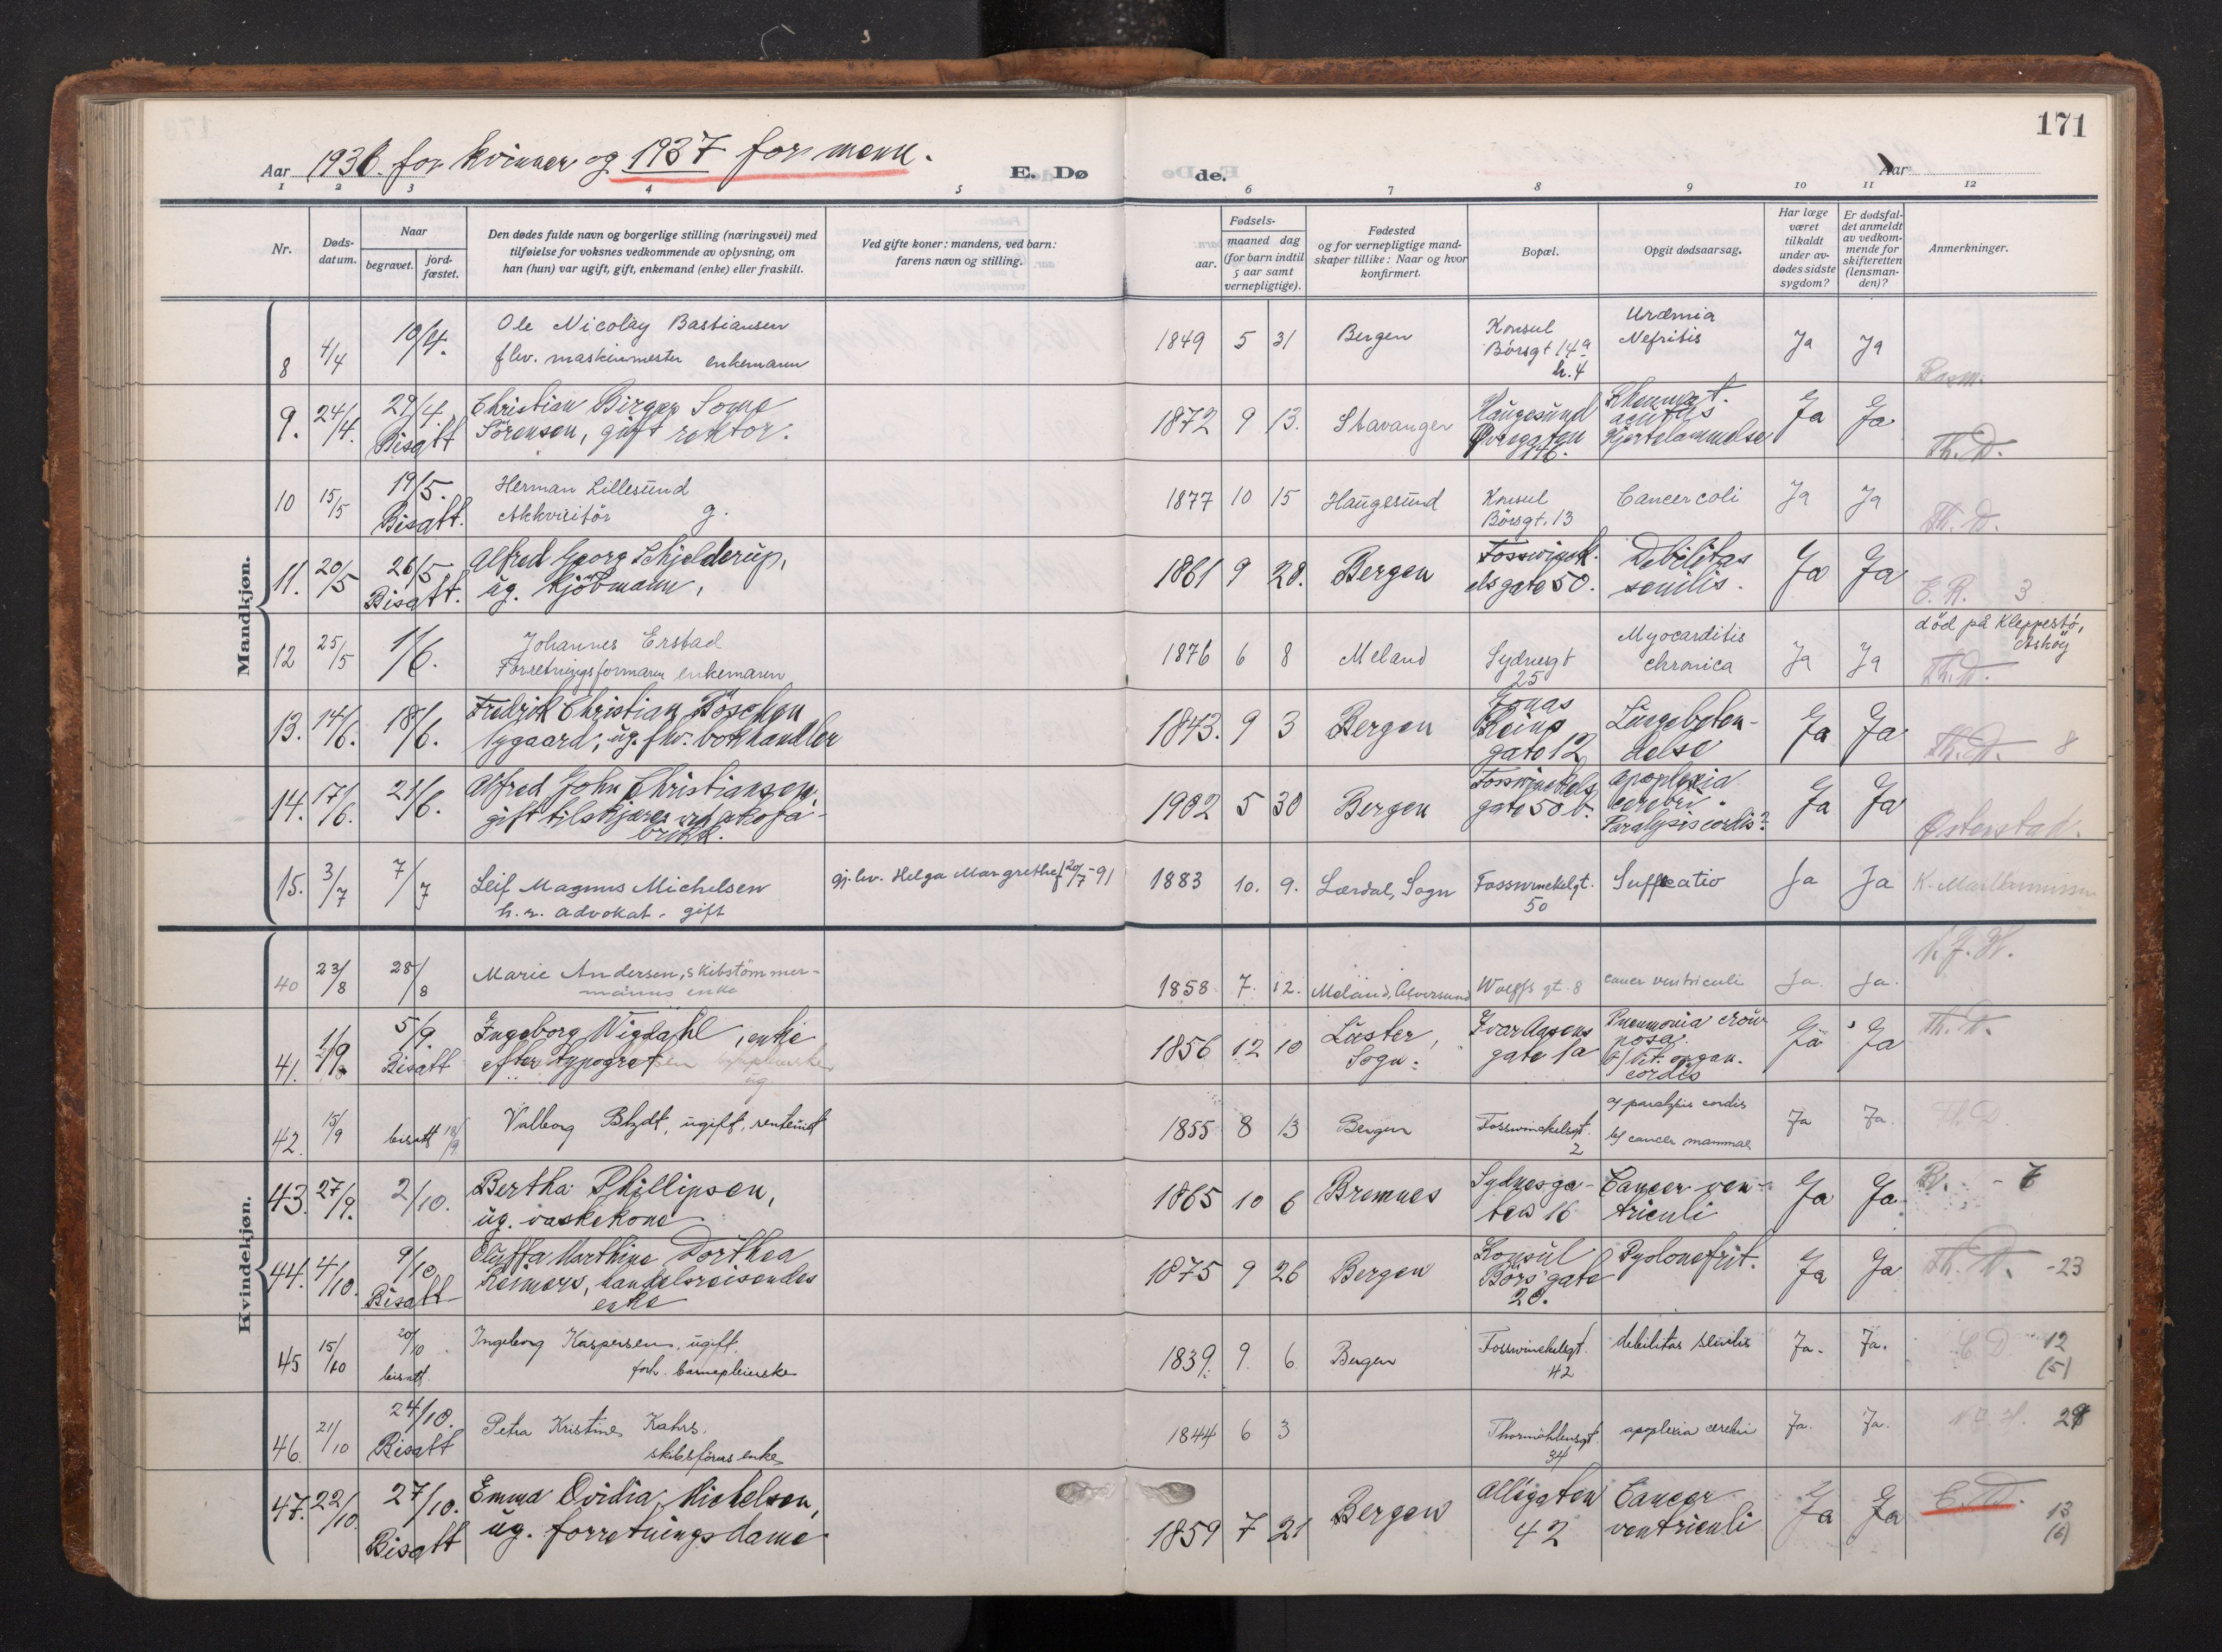 171
Aar 1936 for kvinner og 1937 for menn.
E. Døde.
Aar
1 2 3 4 5 6 7 8 9 10 11 12
Nr.
Døds-datum.
Naar
begravet.
jord-fæstet.
Den dødes fulde navn og borgerlige stilling (næringsvei) med
tilføielse for voksnes vedkommende av oplysning, om
han (hun) var ugift, gift, enkemand (enke) eller fraskilt.
Ved gifte koner: mandens, ved barn:
farens navn og stilling.
Fødsels-
aar.
maaned dag
(for barn indtil
5 aar samt
vernepligtige).
Fødested
og for vernepligtige mand-
skaper tillike: Naar og hvor
konfirmert.
Bopæl.
Opgit dødsaarsag.
Har læge
været
tilkaldt
under av-
dødes sidste
sygdom?
Er dødsfal-
det anmeldt
av vedkom-
mende for
skifteretten
(lensman-
den)?
Anmerkninger.
Mandkjøn.
8 4/4 10/4. Ole Nicolay Bastiansen
flev. maskinmester enkemann
1849 5 31 Bergen Konsul
Börsgt 14a
h. 4
Urämia
Nefritis
Ja Ja
9. 24/4. 29/4 Bisatt Christian Birger Sogne
Sörensen, gift rektor.
1872 9 13. Stavanger Haugesund
Øvregaten
146.
Rheumat.
acutus
Hjertelammelse
Ja Ja Th. D.
10 15/5 19/5. Bisatt. Herman Lillesund
Akkvisitör g.
1877 10 15 Haugesund Konsul
Börsgt. 13
Cancer coli
Ja Ja Th. D.
11. 20/5 26/5 Bisatt. Alfred Georg Schjelderup,
ug. kjöbmann,
1861 9 28. Bergen Fosswinck-
elsgate 50.
Debilitas
senilis.
Ja Ja E. R. 3
12 25/5 1/6. Johannes Erstad
Forretningsformann enkemann
1876 6 8 Meland Sydnesgt
25
Myocarditis
chronica
Ja Ja död på Kleppestö,
Askøy
Th. D.
13. 14/6. 18/6. Fredrik Christian Böschen
Nygaard, ug. fhv. bokhandler
1843. 9 3 Bergen Jonas
Reins
gate 12
Lungebeten-
delse
Ja Ja Th. D. 8
14. 17/6. 21/6. Alfred John Christiansen,
gift tilskjærer ved skofa-
brikk.
1902 5 30 Bergen Fosswinckels
gate 50 b.
Apoplexia
cerebri.
Paralysis cordis?
Ja Ja Østerstad.
15. 3/7 7/7 Leif Magnus Michelsen
h. r. advokat, gift
gj. lev. Helga Margrethe f 20/7-91
1883 10. 9. Lærdal, Sogn Fosswinckelgt.
50
Suffocatio
Ja Ja
Kvindekjøn.
40 23/8 28/8 Marie Andersen, skibstömmer-
manns enke
1858 7. 12. Meland, Alversund Wolffs gt. 8 cancer ventriculi Ja. Ja.
41. 1/9 5/9. Bisatt Ingeborg Wigdahl, enke
efter typograf
1856 12 10 Luster,
Sogn.
Ivar Aasens
gate 1a
Pneumonia crou-
posa.
b/ Vit. organ.
cordis
Ja Ja Th. D.
42. 15/9 bisatt 18/9. Valborg Blydt, ugift, rentenist
1855 8 13 Bergen Fosswinckelsgt.
2
a/ paralysis cordis
b/ cancer mammae
Ja Ja. Th. D
43. 27/9. 2/10. Bertha Phillipsen,
ug. vaskekone
1865 10 6 Bremnes Sydnesga-
ten 16
Cancer ven-
triculi
Ja Ja
44. 4/10. 9/10 Bisatt Oluffa Marthine Dorthea
Reimers, handelsreisendes
enke
1875 9 26 Bergen Konsul
Börs gate
20.
Pyelonefrit.
Ja Ja Th. D. -23
45 15/10 20/10 bisatt. Ingeborg Kaspersen, ugift,
forh. barnepleierske
1839. 9. 6 Bergen Fosswinckelsgt.
42
debilitas senilis Ja. Ja. C D 12
(5)
46. 21/10 24/10. Bisatt Petra Kristine Kahrs.
skibsförers enke
1844 6 3 Thormøhlensgt.
34
apoplexia cerebri Ja. Ja.
47. 22/10. 27/10. Bisatt Emma Ovidia Michelsen,
ug. forretningsdame
1859 7 21 Bergen Allégaten
42
Cancer
ventriculi
Ja Ja C. D. 13
(6)